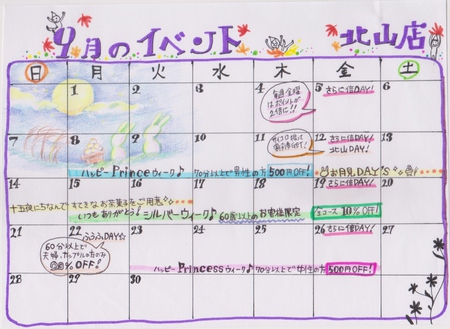 9月のイベント 北山店
日 月 火 水 木 金 土
1 2 3 4 5 6
毎週金曜
はポイントが
2倍に!!
さらに倍DAY!
7 8 9 10 11 12 13
さらに倍DAY!
北山DAY!
ハッピーPrinceウィーク♪ 70分以上で男性の方500円OFF!
お月見DAY's
14 15 16 17 18 19 20
さらに倍DAY!
十五夜にちなんですてきなお茶菓子をご用意
いつもありがとう!シルバーウィーク♪ 60歳以上のお客様限定
全コース10%OFF!
21 22 23 24 25 26 27
ふうふDAY☆
60分以上で
夫婦、カップルの方のみ
%OFF!
さらに倍DAY!
ハッピーPrincessウィーク♪ 70分以上で女性の方500円OFF!
28 29 30